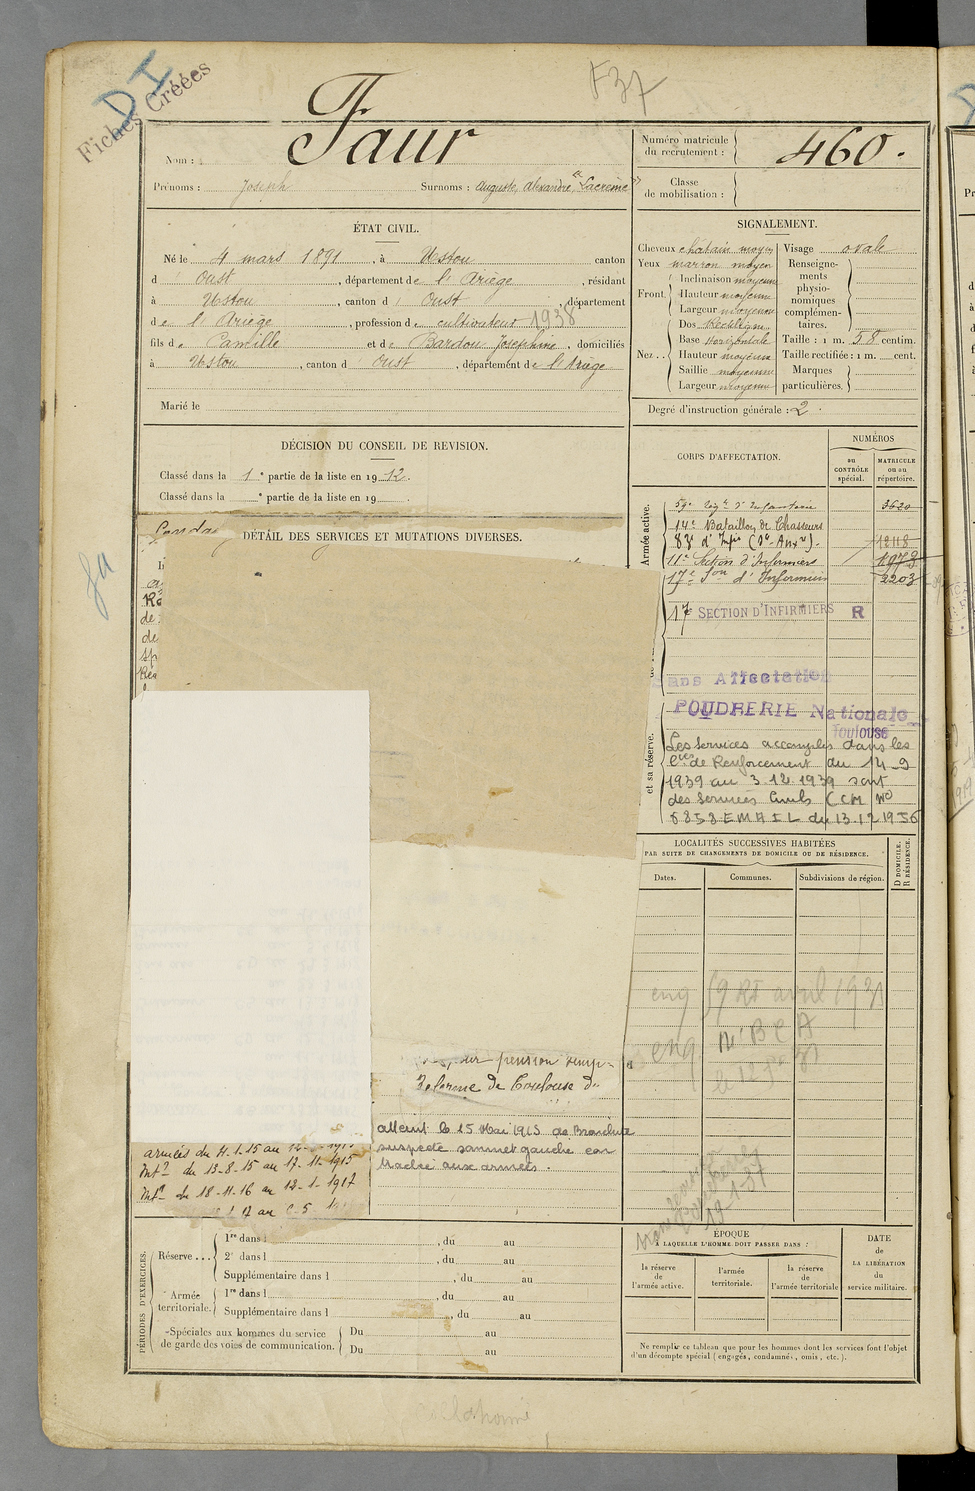 Fiches Créées
DI
F37
Nom : Faur
Prénoms : Joseph Surnoms : Auguste, Alexandre, "Lacreme"
Numéro matricule du recrutement : 460.
Classe de mobilisation :
ÉTAT CIVIL.
Né le 4 mars 1891, à Ustou canton
d'Oust, département de l'Ariège, résidant
à Ustou, canton d'Oust, département
de l'Ariège, profession de cultivateur 1938
fils de Camille et de Bardou Joséphine, domiciliés
à Ustou, canton d'Oust, département de l'Ariège
Marié le
SIGNALEMENT.
Cheveux chatain moyen
Yeux marron moyen
Front. Inclinaison moyenne
Hauteur moyenne
Largeur moyenne
Nez. Dos Rectiligne
Base Horizontale
Hauteur moyenne
Saillie moyenne
Largeur moyenne
Visage ovale
Renseignements physionomiques complémentaires.
Taille : 1 m. 58 centim.
Taille rectifiée : 1 m. cent.
Marques particulières.
Degré d'instruction générale : 2.
DÉCISION DU CONSEIL DE REVISION.
Classé dans la 1e partie de la liste en 1912.
Classé dans la e partie de la liste en 19 .
DÉTAIL DES SERVICES ET MUTATIONS DIVERSES.
CORPS D'AFFECTATION.
NUMÉROS
au CONTRÔLE spécial.
MATRICULE ou au répertoire.
Armée active.
59e Régt d'Infanterie 3620
14e Bataillon de Chasseurs
83 d'Infie (Sce Auxre). 12118
11e Section d'Infirmiers 1973
17e Son d'Infirmiers 2203
17e SECTION D'INFIRMIERS R
Sans Affectation
POUDRERIE Nationale
Toulouse
et sa réserve.
Les services accomplis dans les
Cies de Renforcement du 14-9
1939 au 3.12.1939 sont
des Services Civils (CM No
5853 EMAIL du 13.12.1956
LOCALITÉS SUCCESSIVES HABITÉES
PAR SUITE DE CHANGEMENTS DE DOMICILE OU DE RÉSIDENCE.
Dates. Communes. Subdivisions de région.
D DOMICILE.
R RÉSIDENCE.
eng 59 RI avril 19
eng 14e BCA
pension temp
Réforme de Toulouse du
atteint le 15 Mai 1913 de Bronchite
suspecte sommet gauche con
tractée aux armées.
armées du 11-1-15 au
Intr du 13-8-15 au 17-11-1915
Intr du 18-11-16 au 12-1-1917
PÉRIODES D'EXERCICES.
Réserve ...
1re dans l , du au
2e dans l , du au
Supplémentaire dans l , du au
Armée territoriale.
1re dans l , du au
Supplémentaire dans l , du au
Spéciales aux hommes du service de garde des voies de communication.
Du au
Du au
ÉPOQUE
A LAQUELLE L'HOMME DOIT PASSER DANS :
la réserve de l'armée active.
l'armée territoriale.
la réserve de l'armée territoriale
DATE de LA LIBÉRATION du service militaire.
Ne remplir ce tableau que pour les hommes dont les services font l'objet
d'un décompte spécial (engagés, condamnés, omis, etc.).